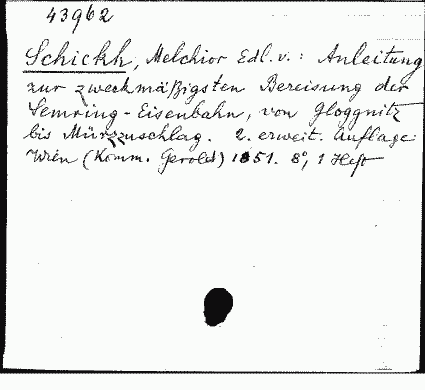 43962
Schickh, Melchior Edl. v.: Anleitung
zur zweckmäßigsten Bereisung der
Semring-Eisenbahn, von Gloggnitz
bis Mürzzuschlag. 2. erweit. Auflage:
Wien (Komm. Gerold) 1851. 8°, 1 Heft